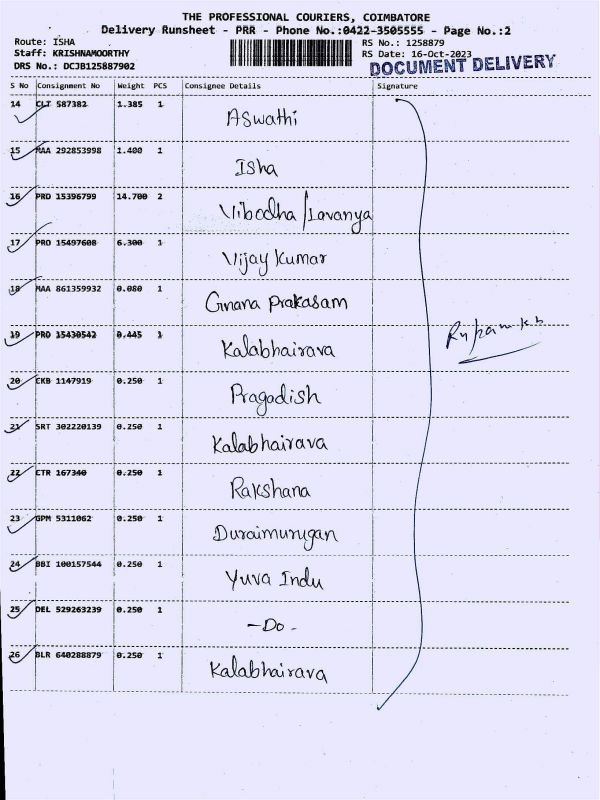 THE PROFESSIONAL COURIERS, COIMBATORE
Delivery Runsheet - PRR - Phone No.:0422-3505555 - Page No.:2
Route: ISHA RS No.: 1258879
Staff: KRISHNAMOORTHY RS Date: 16-Oct-2023
DRS No.: DCJB125887902 DOCUMENT DELIVERY
S No Consignment No Weight PCS Consignee Details Signature
14 CLT 587382 1.385 1 Aswathi
15 MAA 292853998 1.400 1 Isha
16 PRO 15396799 14.700 2 Vibodha/Lavanya
17 PRO 15497608 6.300 1 Vijay Kumar
18 MAA 861359932 0.080 1 Gnana Prakasam
19 PRO 15430542 0.445 1 Kalabhairava
20 CKB 1147919 0.250 1 Pragadish
21 SRT 302220139 0.250 1 Kalabhairava
22 CTR 167340 0.250 1 Rakshana
23 GPM 5311062 0.250 1 Duraimurugan
24 BBI 100157544 0.250 1 Yuva Indu
25 DEL 529263239 0.250 1 -Do-
26 BLR 640288879 0.250 1 Kalabhairava